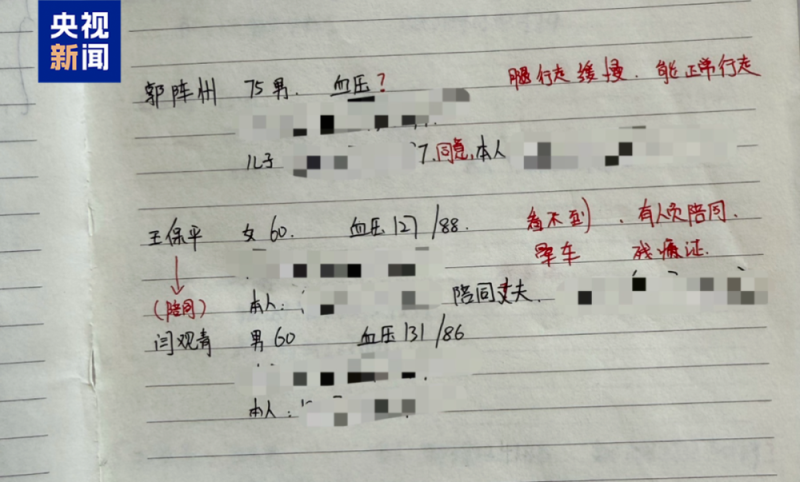 央视
新闻
郭阵州 75男. 血压? 腿行走缓慢. 能正常行走
儿子 7.同意.本人
王保平 女60. 血压127/88. 看不到, 有人员陪同.
晕车 残疾证.
(陪同) 本人: 陪同丈夫.
闫观青 男60 血压131/86
本人: